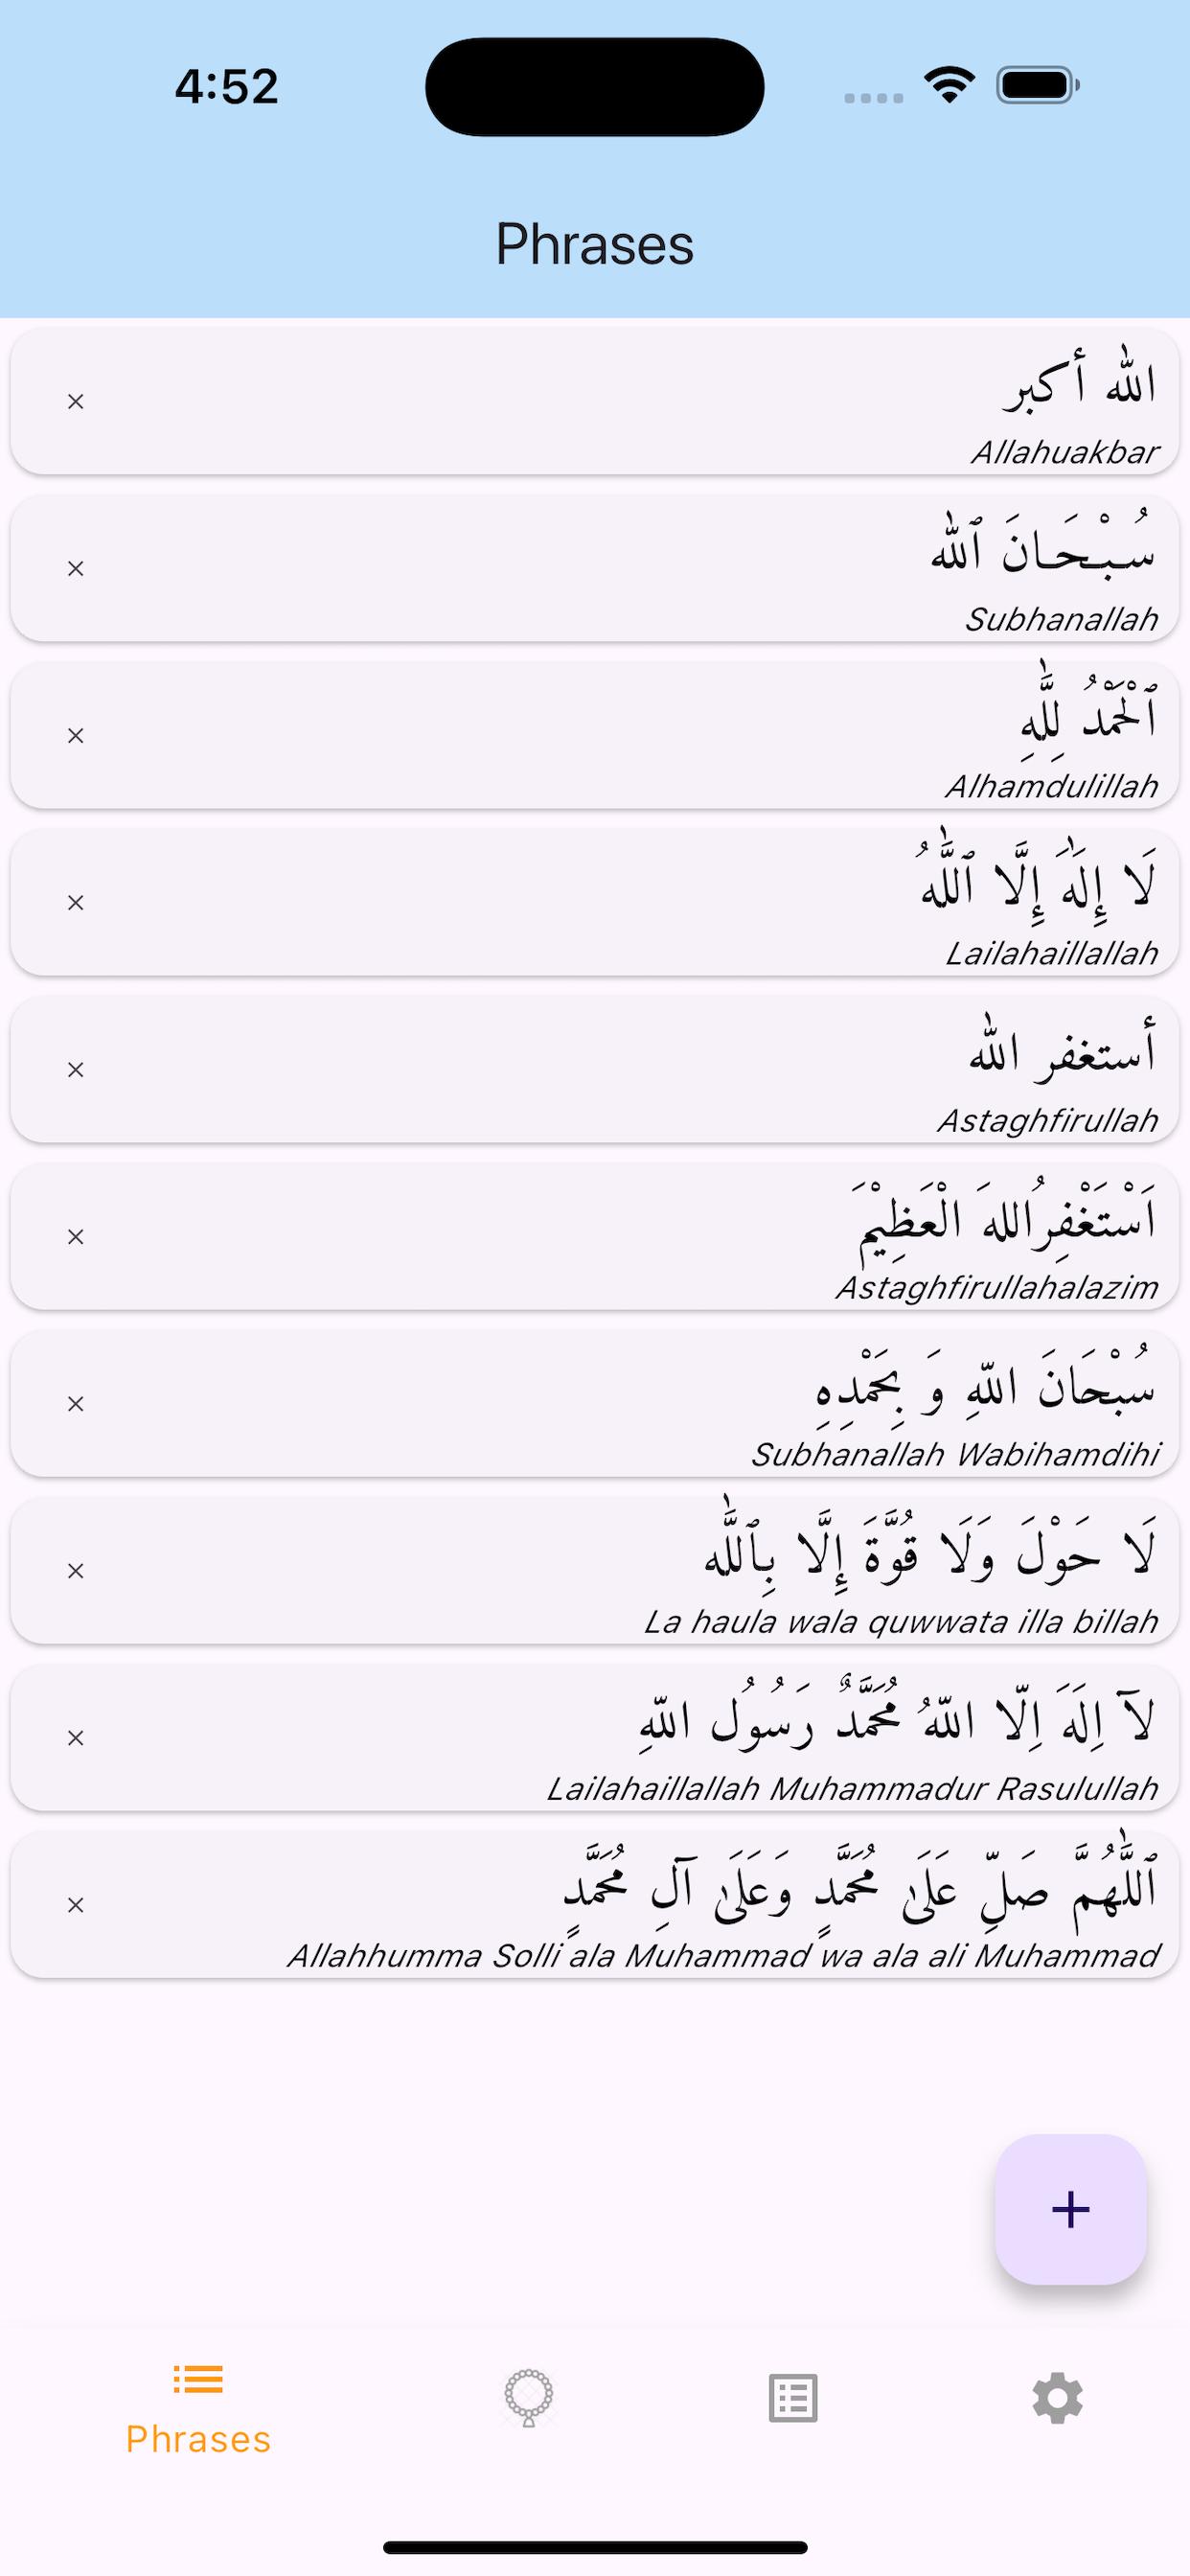 4:52
Phrases
الله أكبر
Allahuakbar
سُبْحَانَ ٱلله
Subhanallah
ٱلْحَمْدُ لِلَّٰهِ
Alhamdulillah
لَا إِلَٰهَ إِلَّا ٱللَّٰهُ
Lailahaillallah
أستغفر الله
Astaghfirullah
اَسْتَغْفِرُاللهَ الْعَظِيْمَ
Astaghfirullahalazim
سُبْحَانَ اللّهِ وَ بِحَمْدِهِ
Subhanallah Wabihamdihi
لَا حَوْلَ وَلَا قُوَّةَ إِلَّا بِٱللَّٰه
La haula wala quwwata illa billah
لآ اِلَهَ اِلّا اللّهُ مُحَمَّدٌ رَسُوُل اللّهِ
Lailahaillallah Muhammadur Rasulullah
ٱللَّٰهُمَّ صَلِّ عَلَىٰ مُحَمَّدٍ وَعَلَىٰ آلِ مُحَمَّدٍ
Allahhumma Solli ala Muhammad wa ala ali Muhammad
Phrases